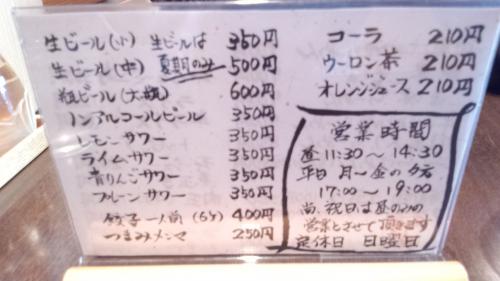 生ビール(小) 生ビールは 350円
生ビール(中) 夏期のみ 500円
瓶ビール(大瓶) 600円
ノンアルコールビール 350円
レモンサワー 350円
ライムサワー 350円
青りんごサワー 350円
プルーンサワー 350円
餃子一人前(6ケ) 400円
つまみメンマ 250円
コーラ 210円
ウーロン茶 210円
オレンジジュース 210円
営業時間
昼 11:30〜14:30
平日 月〜金の夕方
17:00〜19:00
尚、祝日は昼のみの
営業とさせて頂きます
定休日 日曜日